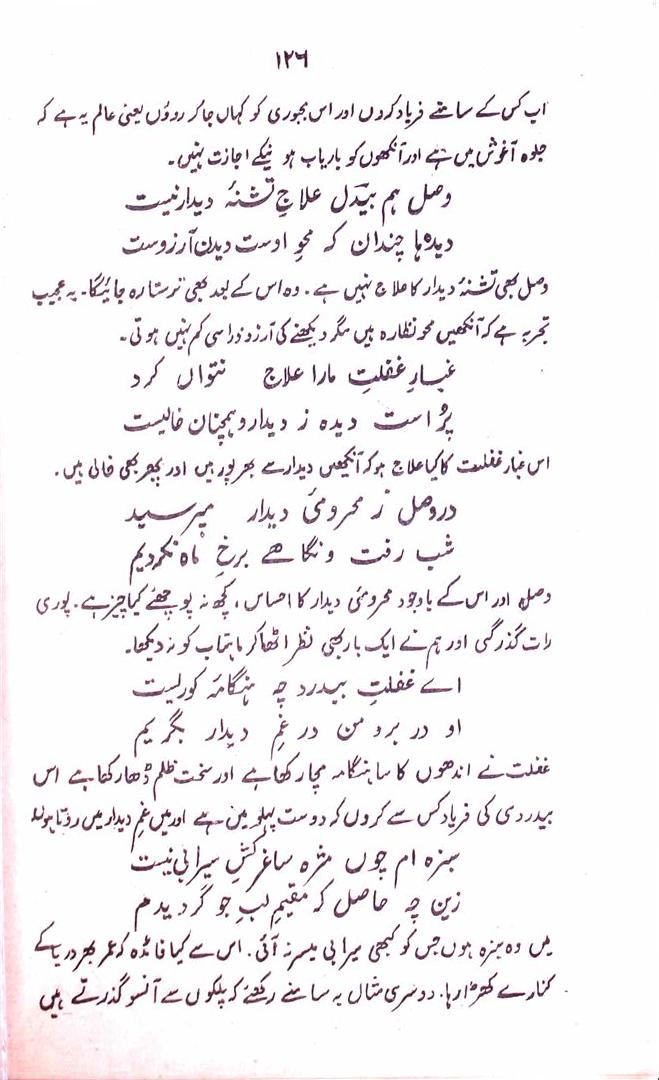 ۱۲۶
اب کس کے سامنے فریاد کروں اور اس مجبوری کو کہاں جا کر روؤں یعنی عالم یہ ہے کہ
جلوہ آغوش میں ہے اور آنکھوں کو باریاب ہونیکے اجازت نہیں۔
وصل ہم بیدل علاجِ تشنۂ دیدار نیست
دیدہ ہا چندان کہ محوِ اوست دیدن آرزوست
وصل بھی تشنۂ دیدار کا علاج نہیں ہے۔ وہ اس کے بعد بھی ترستا رہ جائیگا۔ یہ عجیب
تجربہ ہے کہ آنکھیں محو نظارہ ہیں مگر دیکھنے کی آرزو ذرا سی کم نہیں ہوتی۔
غبارِ غفلتِ مارا علاج نتواں کرد
پُر است دیدہ ز دیدار و ہمچنان خالیست
اس غبار غفلت کا کیا علاج ہو کہ آنکھیں دیدار سے بھرپور ہیں اور پھر بھی خالی ہیں۔
در وصل ز محرومیٔ دیدار مپرسید
شب رفت و نگاہے برخِ ماہ نکردیم
وصل اور اس کے باوجود محرومیٔ دیدار کا احساس، کچھ نہ پوچھئے کیا چیز ہے۔ پوری
رات گذر گئی اور ہم نے ایک بار بھی نظر اٹھا کر ماہتاب کو نہ دیکھا۔
اے غفلتِ بیدرد چہ ہنگامۂ کوریست
او در بر و من در غمِ دیدار بگریم
غفلت نے اندھوں کا سا ہنگامہ مچا رکھا ہے اور سخت ظلم ڈھا رکھا ہے اس
بیدردی کی فریاد کس سے کروں کہ دوست پہلو میں ہے اور میں غمِ دیدار میں روتا ہوں۔
سبزہ ام چوں مژہ ساغر کشِ سیرابی نیست
زین چہ حاصل کہ مقیمِ لبِ جو گردیدم
میں وہ سبزہ ہوں جس کو کبھی سیرابی میسر نہ آئی۔ اس سے کیا فائدہ کہ عمر بھر دریا کے
کنارے کھڑا رہا۔ دوسری مثال یہ سامنے رکھئے کہ پلکوں سے آنسو گذرتے ہیں